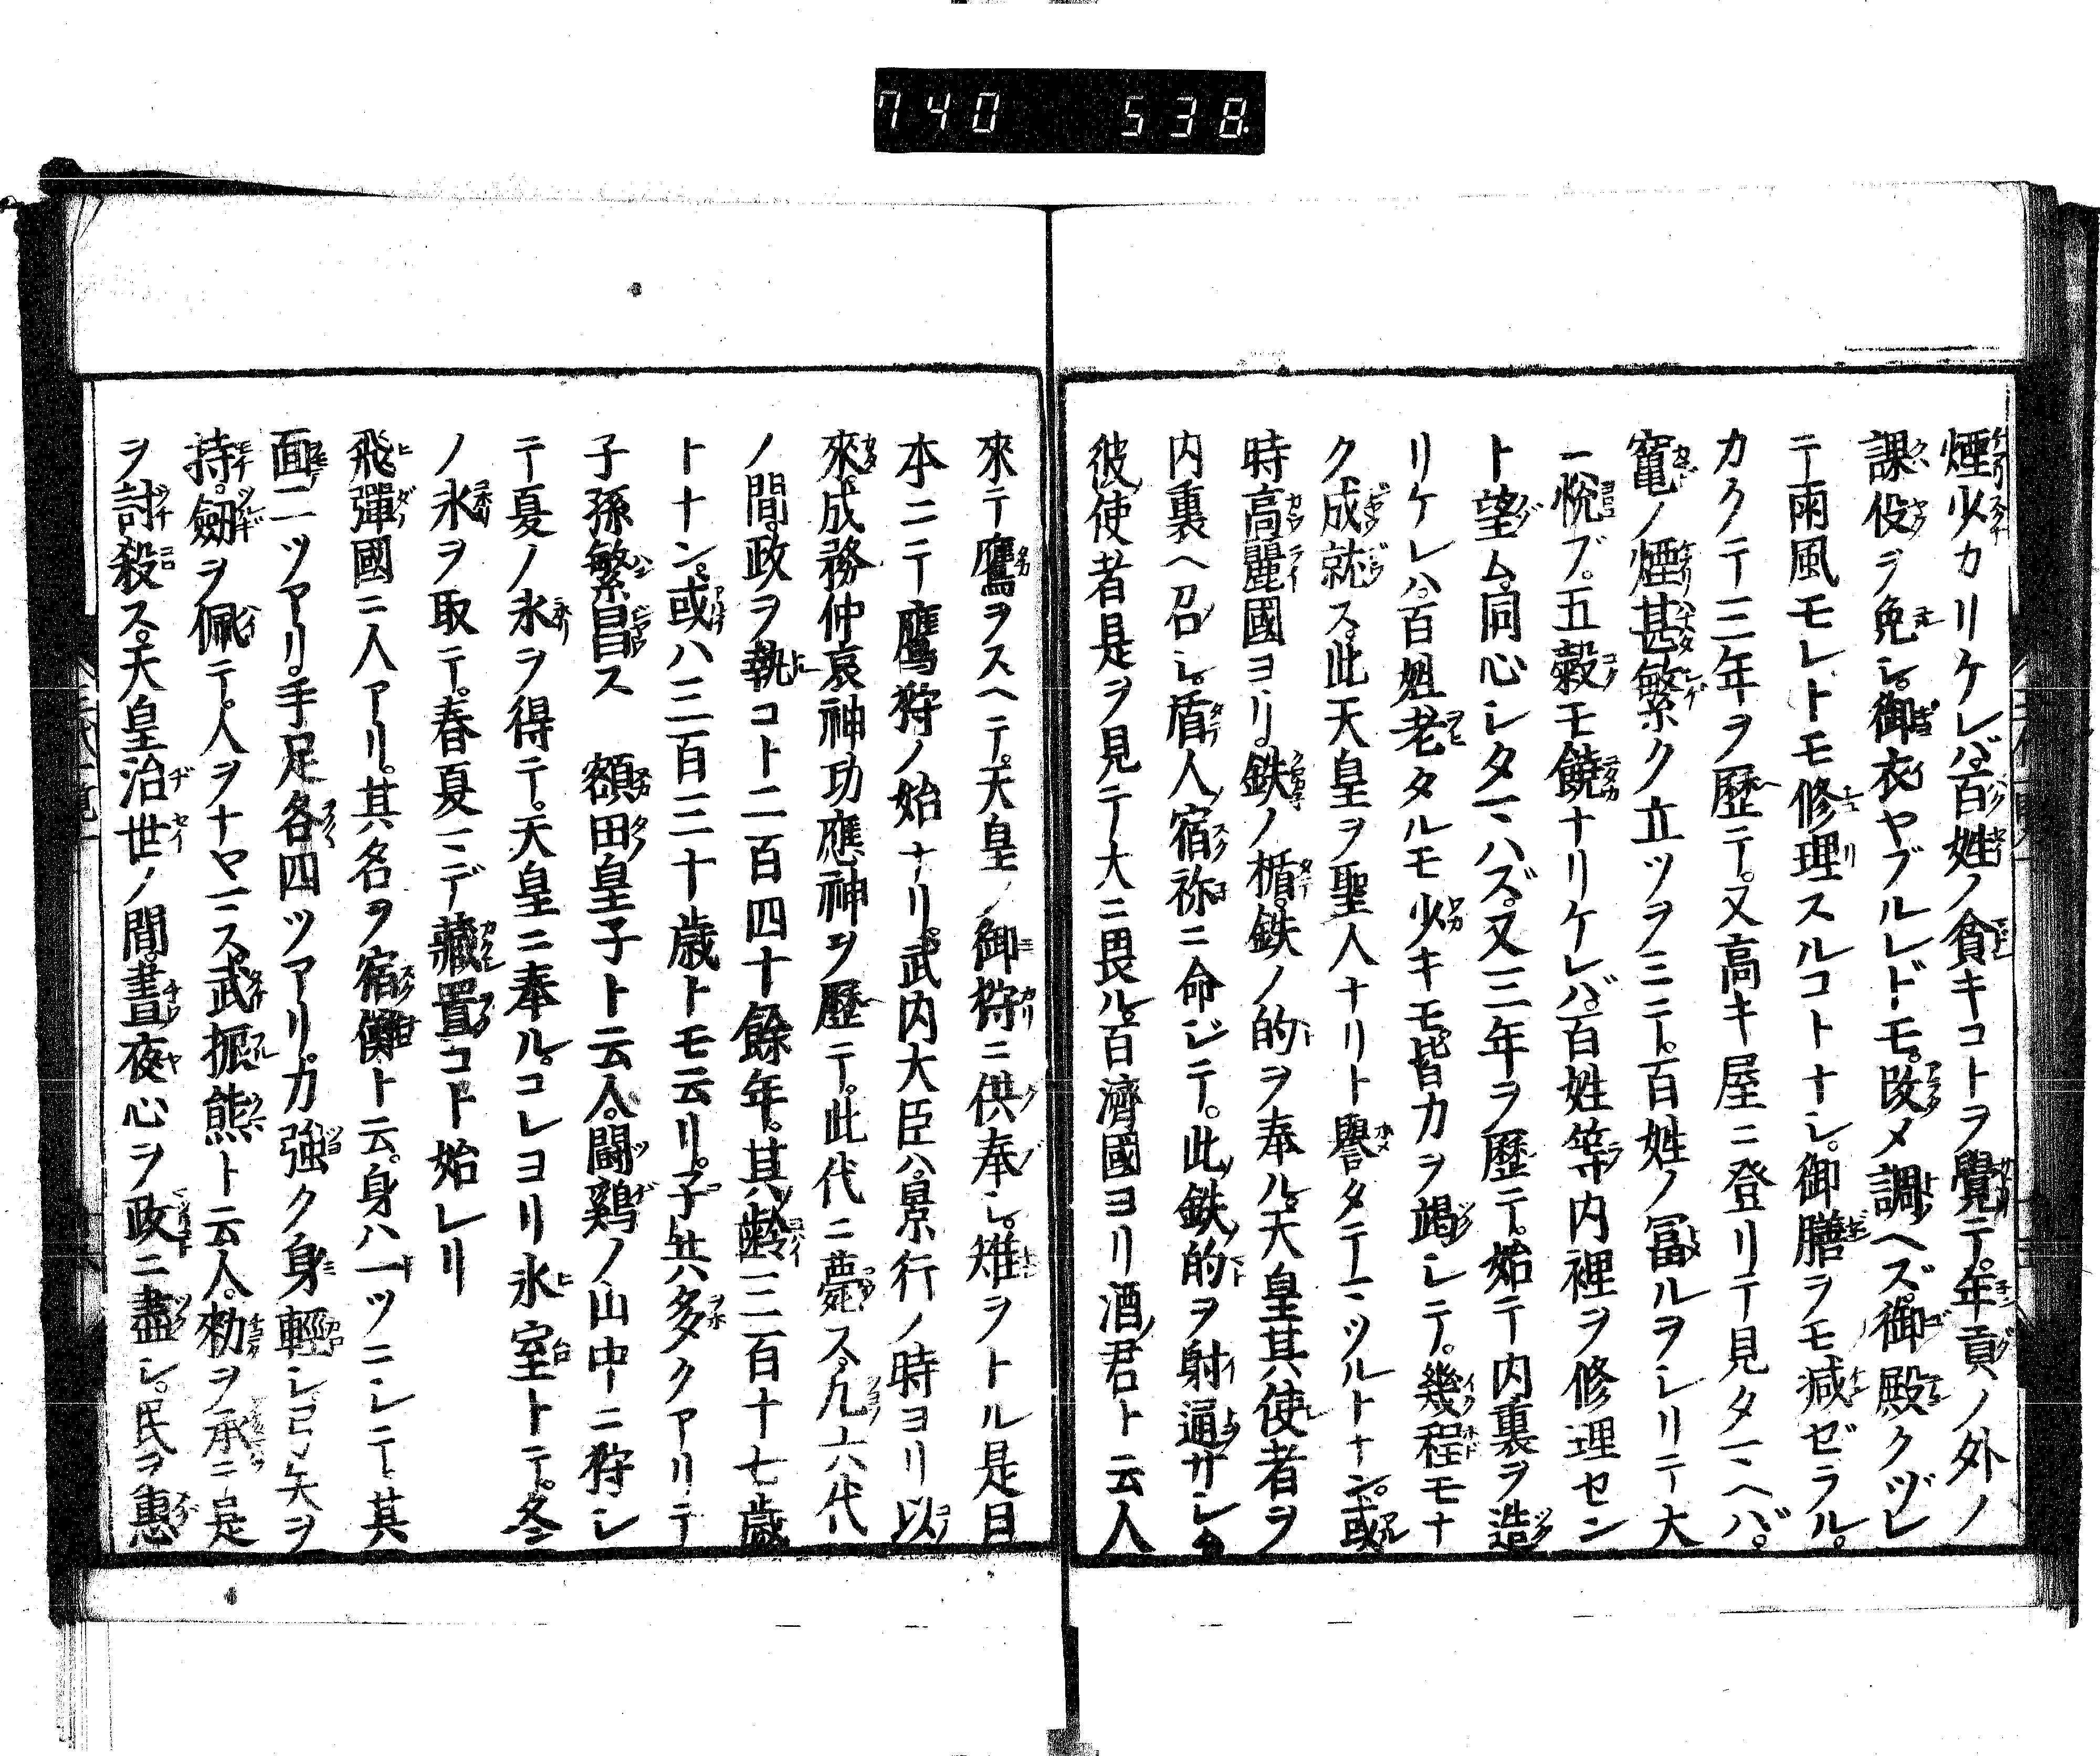 740 538.
煙少カリケレバ。百姓ノ貧キコトヲ覺テ。年貢ノ外ノ
課役ヲ免シ。御衣ヤブルレドモ。改メ調ヘズ。御殿クヅレ
テ雨風モレトモ修理スルコトナシ。御膳ヲモ減ゼラル。
カクテ三年ヲ歴テ。又高キ屋ニ登リテ見タマヘバ。
竃ノ煙甚繁ク立ツヲミテ。百姓ノ冨ルヲシリテ大
ニ悅ブ。五穀モ饒ナリケレバ。百姓等内裡ヲ修理セン
ト望ム。同心シタマハズ。又三年ヲ歷テ。始テ内裏ヲ造
リケレハ。百姓老タルモ少キモ皆力ヲ竭シテ。幾程モナ
ク成就ス。此天皇ヲ聖人ナリト譽タテマツルトナン。或
時高麗國ヨリ。鉄ノ楯。鉄ノ的ヲ奉ル。天皇其使者ヲ
内裏ヘ召シ。盾人宿祢ニ命ジテ。此鉄的ヲ射通サシム
彼使者是ヲ見テ大ニ畏ル。百濟國ヨリ酒君ト云人
來テ鷹ヲスヘテ。天皇ノ御狩ニ供奉シ。雉ヲトル是日
本ニテ鷹狩ノ始ナリ。武内大臣ハ。景行ノ時ヨリ以
來。成務仲哀神功應神ヲ歷テ。此代ニ薨ス。凡六代
ノ間。政ヲ執コト二百四十餘年。其齢三百十七歳
トナン。或ハ三百三十歳トモ云リ。子共多クアリテ
子孫繁昌ス 額田皇子ト云人。闘鶏ノ山中ニ狩シ
テ夏ノ氷ヲ得テ。天皇ニ奉ル。コレヨリ氷室トテ。冬
ノ氷ヲ取テ。春夏マデ藏置コト始レリ
飛彈國ニ人アリ。其名ヲ宿儺ト云。身ハ一ツニシテ。其
面二ツアリ。手足各四ツアリ。力強ク身輕シ弓矢ヲ
持。劔ヲ佩テ。人ヲナヤマス。武振熊ト云人。勅ヲ承テ是
ヲ討殺ス。天皇治世ノ間。晝夜心ヲ政ニ盡シ。民ヲ惠